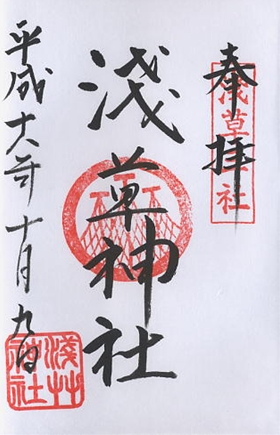 奉拝
浅草神社
淺草神社
平成十六年十月九日
淺艸神社